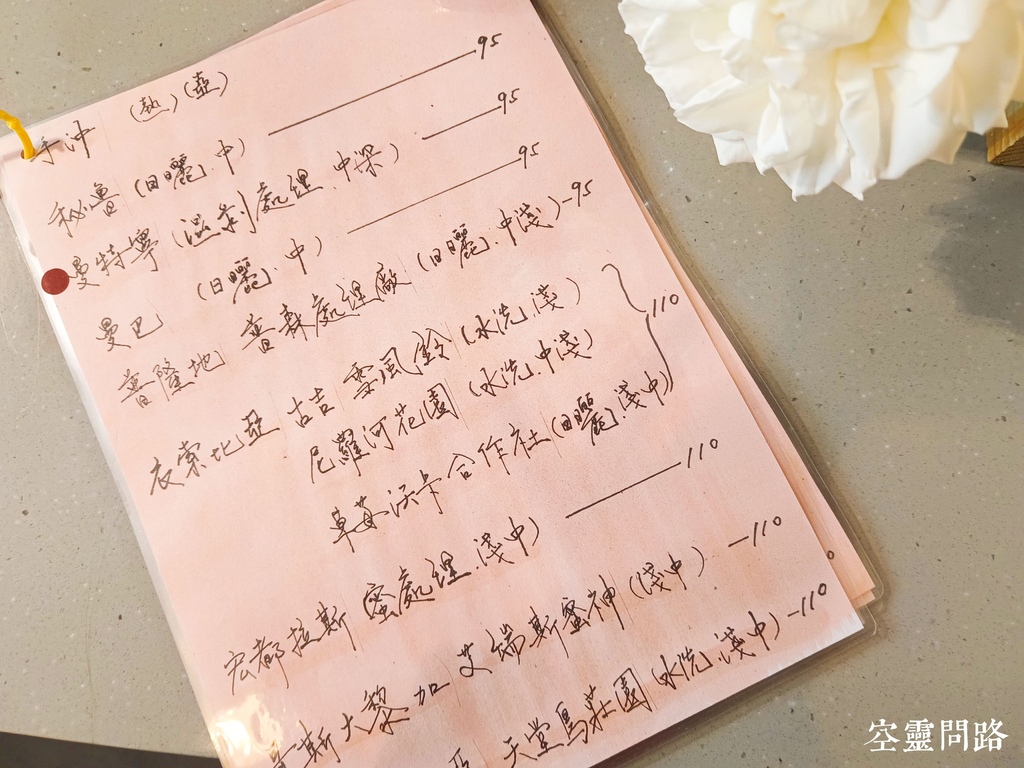 手沖 (熱)(壺)
秘魯 (日曬.中) 95
曼特寧 (濕剝處理.中深) 95
曼巴 (日曬.中) 95
蒲隆地 普森處理廠 (日曬.中淺) 95
衣索比亞 古吉 雪風鈴 (水洗.淺)
尼羅河花園 (水洗.中淺) 110
草莓沃卡合作社 (日曬.淺中)
宏都拉斯 蜜處理.淺中) 110
斯大黎加 艾瑞斯蜜神 (淺中) 110
天堂鳥莊園 (水洗.淺中) 110
空靈問路